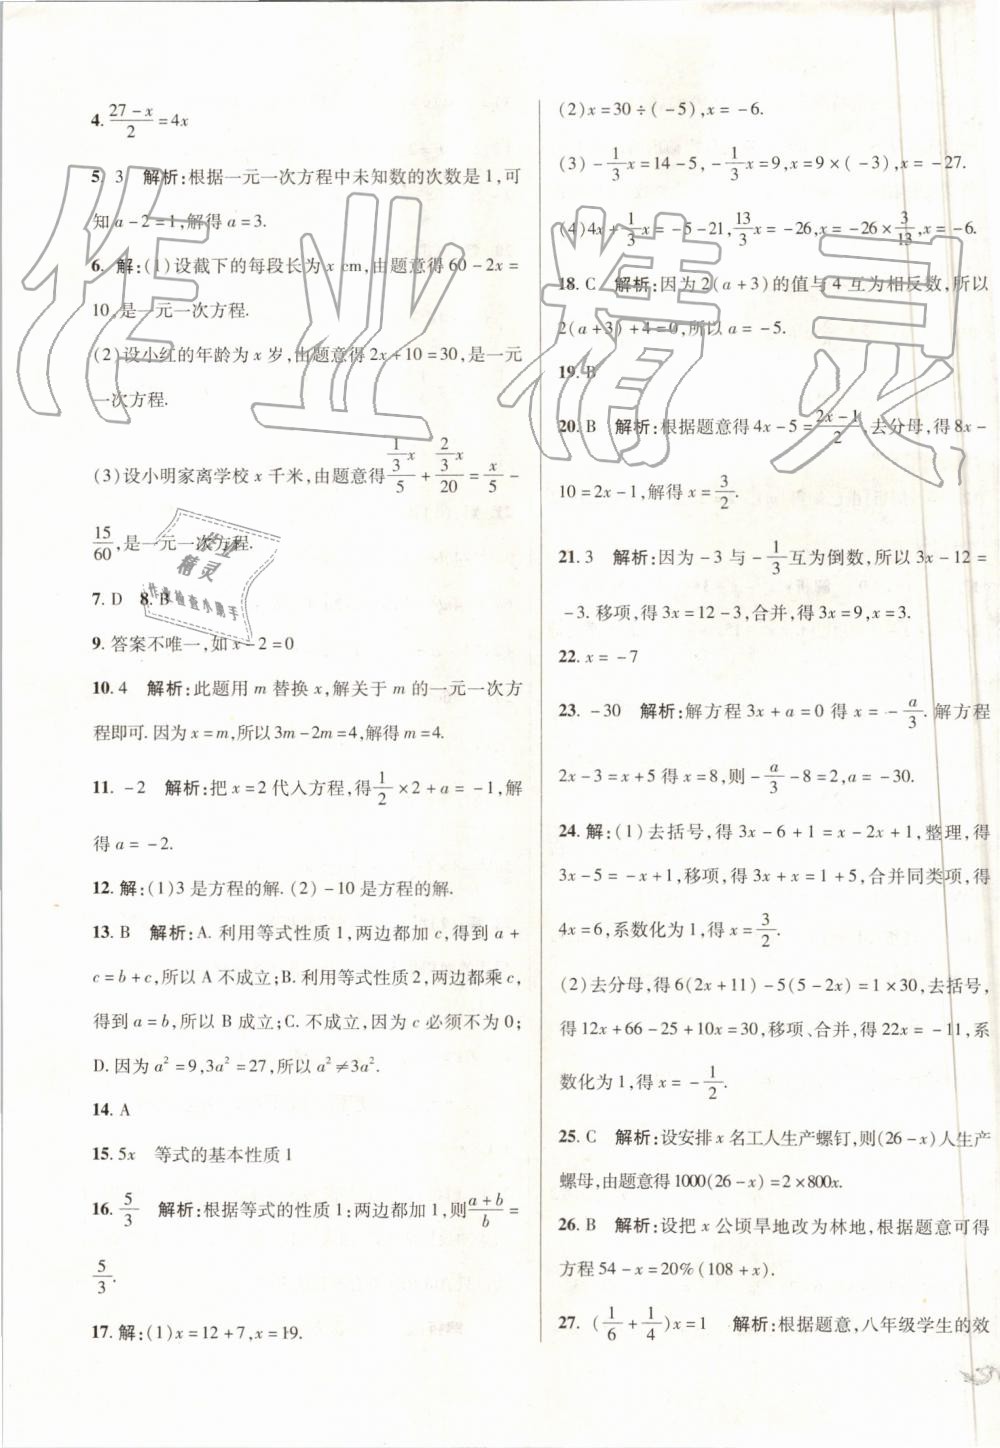 4. (27-x)/2=4x
5. 3 解析:根据一元一次方程中未知数的次数是1,可
知a-2=1,解得a=3.
6. 解:(1)设截下的每段长为x cm,由题意得60-2x=
10,是一元一次方程.
(2)设小红的年龄为x岁,由题意得2x+10=30,是一元
一次方程.
(3)设小明家离学校x千米,由题意得(1/3 x)/5+(2/3 x)/20=x/5-
15/60,是一元一次方程.
7. D 8. B
9. 答案不唯一,如x-2=0
10. 4 解析:此题用m替换x,解关于m的一元一次方
程即可.因为x=m,所以3m-2m=4,解得m=4.
11. -2 解析:把x=2代入方程,得1/2×2+a=-1,解
得a=-2.
12. 解:(1)3是方程的解.(2)-10是方程的解.
13. B 解析:A.利用等式性质1,两边都加c,得到a+
c=b+c,所以A不成立;B.利用等式性质2,两边都乘c,
得到a=b,所以B成立;C.不成立,因为c必须不为0;
D.因为a²=9,3a²=27,所以a²≠3a².
14. A
15. 5x 等式的基本性质1
16. 5/3 解析:根据等式的性质1:两边都加1,则(a+b)/b=
5/3.
17. 解:(1)x=12+7,x=19.
(2)x=30÷(-5),x=-6.
(3)-1/3x=14-5,-1/3x=9,x=9×(-3),x=-27.
(4)4x+1/3x=-5-21,13/3x=-26,x=-26×3/13,x=-6.
18. C 解析:因为2(a+3)的值与4互为相反数,所以
2(a+3)+4=0,所以a=-5.
19. B
20. B 解析:根据题意得4x-5=(2x-1)/2,去分母,得8x-
10=2x-1,解得x=3/2.
21. 3 解析:因为-3与-1/3互为倒数,所以3x-12=
-3.移项,得3x=12-3,合并,得3x=9,x=3.
22. x=-7
23. -30 解析:解方程3x+a=0得x=-a/3.解方程
2x-3=x+5得x=8,则-a/3-8=2,a=-30.
24. 解:(1)去括号,得3x-6+1=x-2x+1,整理,得
3x-5=-x+1,移项,得3x+x=1+5,合并同类项,得
4x=6,系数化为1,得x=3/2.
(2)去分母,得6(2x+11)-5(5-2x)=1×30,去括号,
得12x+66-25+10x=30,移项、合并,得22x=-11,系
数化为1,得x=-1/2.
25. C 解析:设安排x名工人生产螺钉,则(26-x)人生产
螺母,由题意得1000(26-x)=2×800x.
26. B 解析:设把x公顷旱地改为林地,根据题意可得
方程54-x=20%(108+x).
27. (1/6+1/4)x=1 解析:根据题意,八年级学生的效
作业精灵
作业
精灵
作业检查小助手